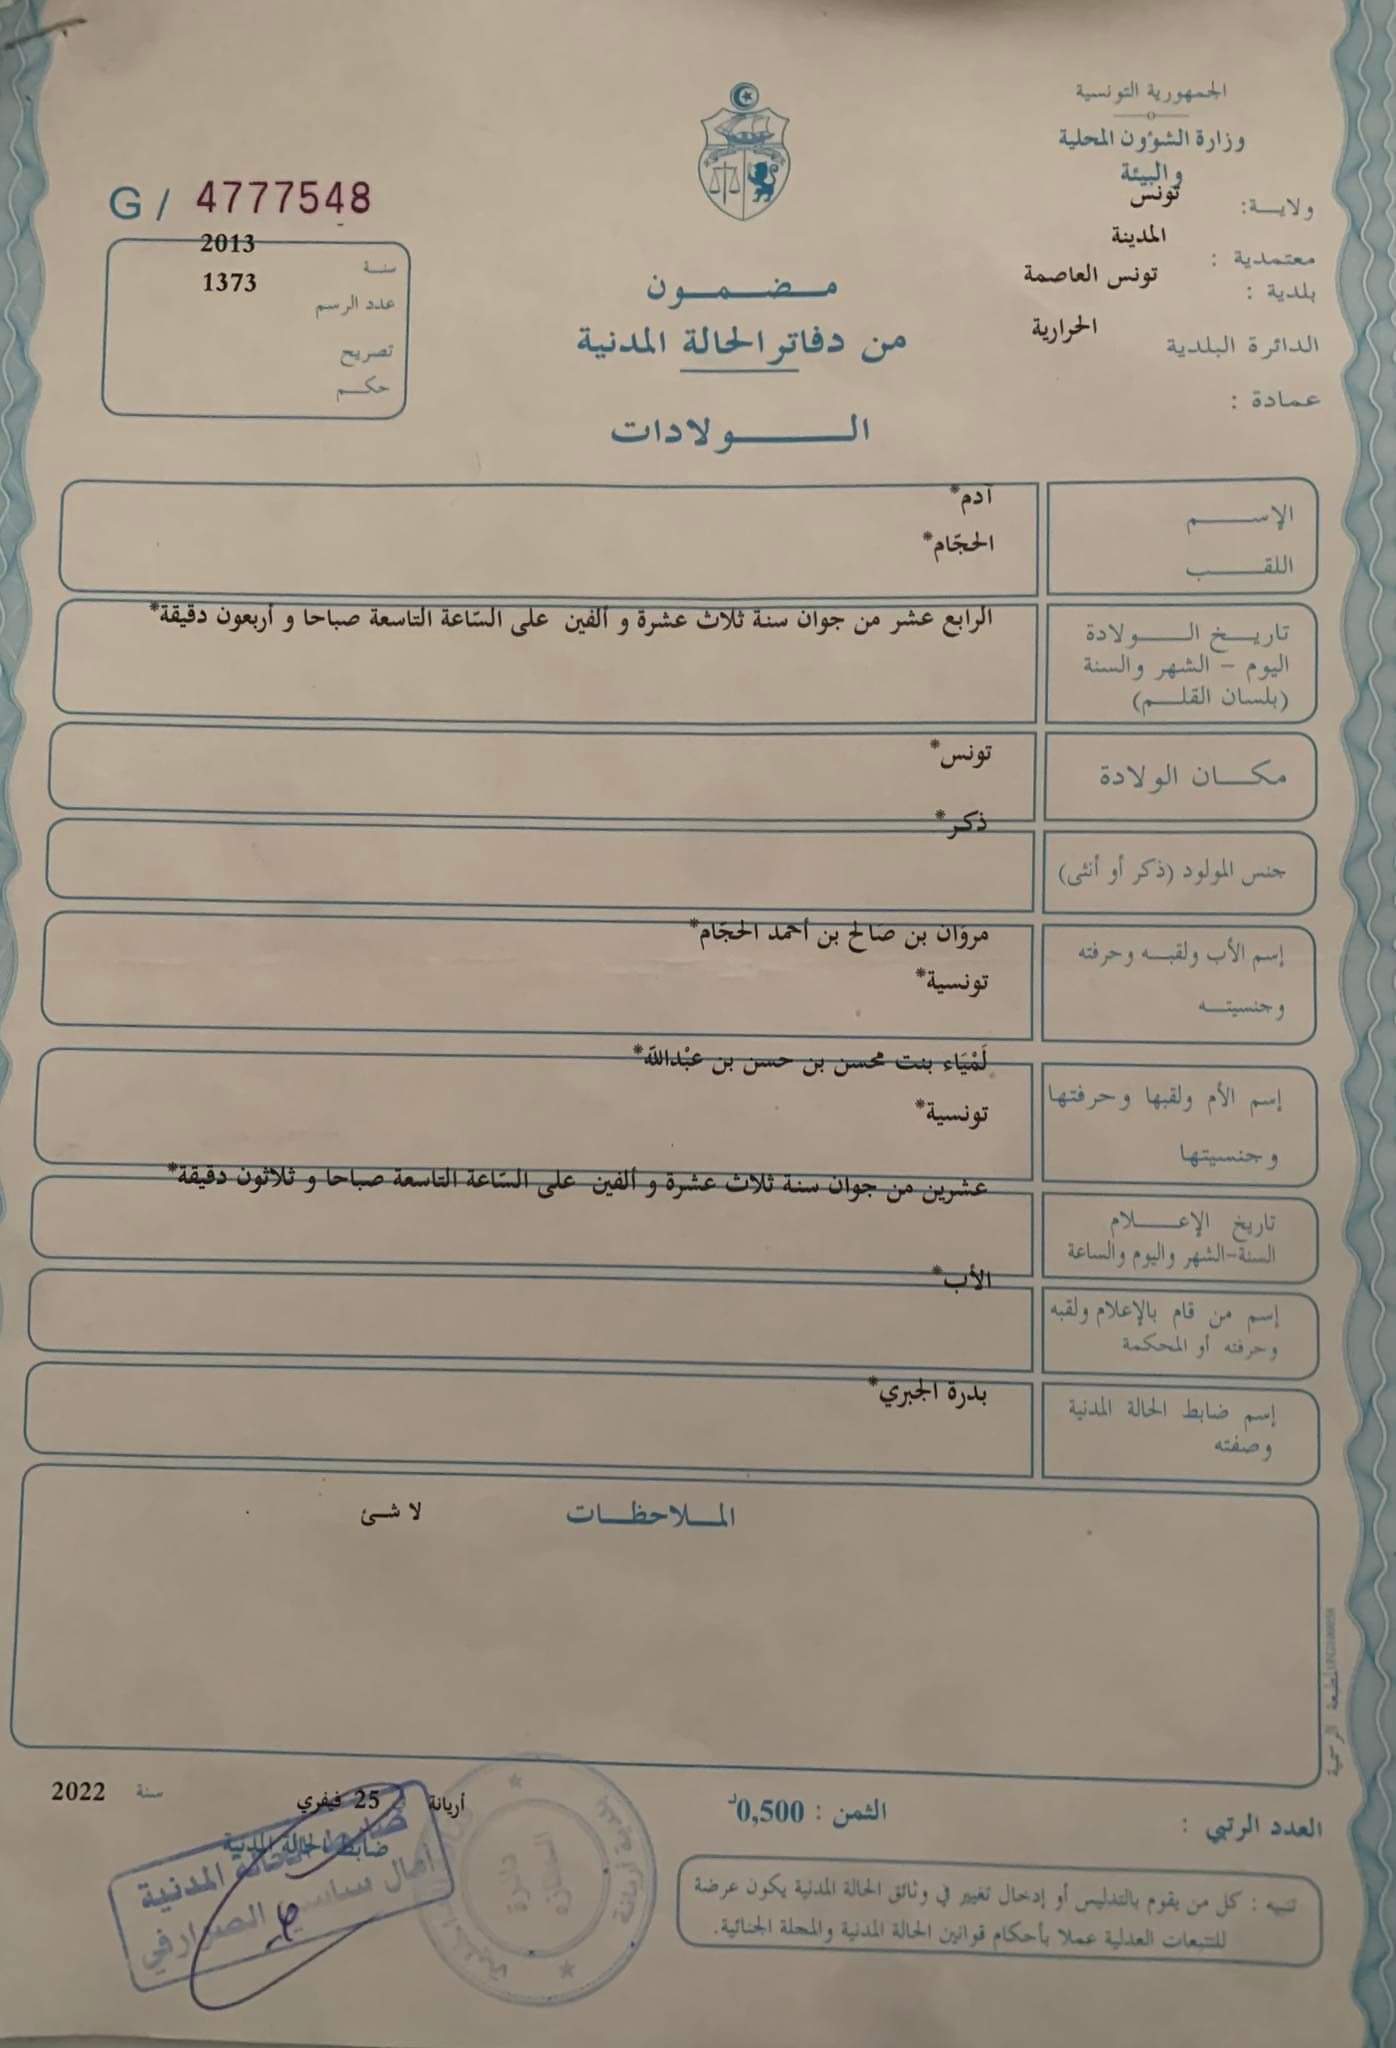 الجمهورية التونسية
وزارة الشؤون المحلية
والبيئة
ولايـة: تونس
معتمدية : المدينة
بلدية : تونس العاصمة
الدائرة البلدية الحرارية
عمادة :
G / 4777548
سنـة 2013
عدد الرسم 1373
تصريح
حكـم
مـضـمـون
من دفاتر الحالة المدنية
الـولادات
الإسـم آدم*
اللقـب الحجّام*
تاريـخ الـولادة
اليوم - الشهر والسنة
(بلسان القلـم)
الرابع عشر من جوان سنة ثلاث عشرة و ألفين على السّاعة التاسعة صباحا و أربعون دقيقة*
مكـان الولادة تونس*
جنس المولود (ذكر أو أنثى) ذكر*
إسم الأب ولقبـه وحرفته
وجنسيتـه
مروان بن صالح بن أحمد الحجّام*
تونسية*
إسم الأم ولقبها وحرفتها
وجنسيتها
لَمْيَاء بنت محسن بن حسن بن عبْدالله*
تونسية*
تاريخ الإعـلام
السنة-الشهر واليوم والساعة
عشرين من جوان سنة ثلاث عشرة و ألفين على السّاعة التاسعة صباحا و ثلاثون دقيقة*
إسم من قام بالإعلام ولقبه
وحرفته أو المحكمة
الأب*
إسم ضابط الحالة المدنية
وصفته
بدرة الجبري*
المـلاحظـات لا شئ
المطبعة الرسمية
العدد الرتبي :
الثمن : 0,500د
أريانة 25 فيفري سنة 2022
ضابط الحالة المدنية
ضابط الحالة المدنية
آمال ساسي الصوارفي
بلدية أريانة
دائرة
تنبيه : كل من يقوم بالتدليس أو إدخال تغيير في وثائق الحالة المدنية يكون عرضة
للتتبعات العدلية عملا بأحكام قوانين الحالة المدنية والمجلة الجنائية.